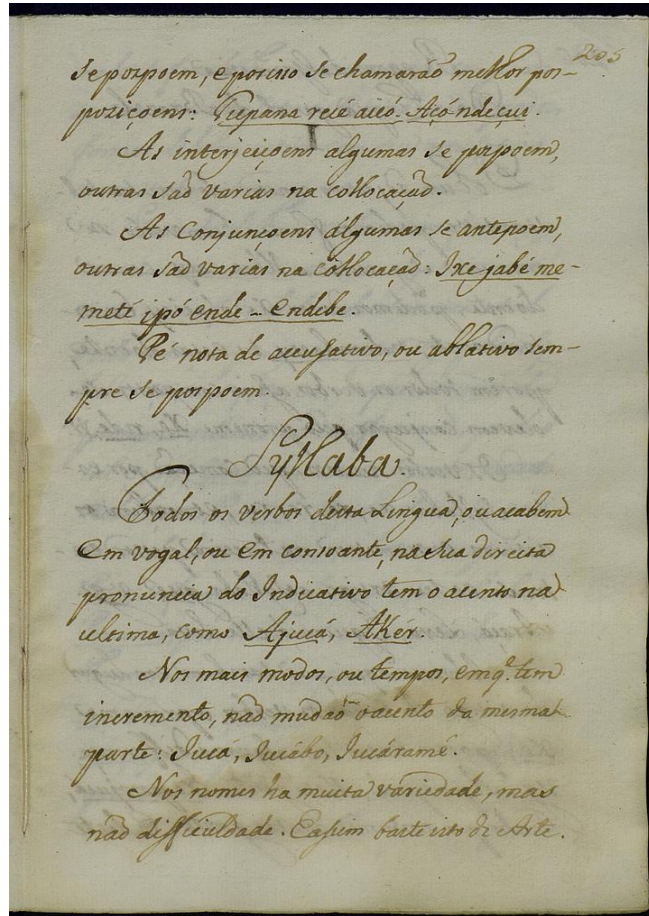 205
se pospoem, e por isso se chamaráõ melhor pos-
poziçoens: Tupana recé aicó. Açó ndeçui.
As interjeiçoens algumas se pospoem,
outras saõ varias na collocaçaõ.
As Conjunçoens álgumas se antepoem,
outras saõ varias na collocaçaõ: Ixe jabé me-
meté ipó ende - endebe.
Pé nota de accusativo, ou ablativo sem-
pre se pospoem.
Syllaba.
Todos os verbos desta Lingua, ou acabem
em vogal, ou em consoante, na sua direita
pronuncia do Indicativo tem o acento na
ultima, como Ajucá, Akér.
Nos mais modos, ou tempos, em q. tem
incremento, naõ mudaõ o acento da mesma
parte: Jucá, Jucábo, Jucáramé.
Nos nomes ha muita variedade, mas
naõ difficuldade. E assim baste isto de Arte.